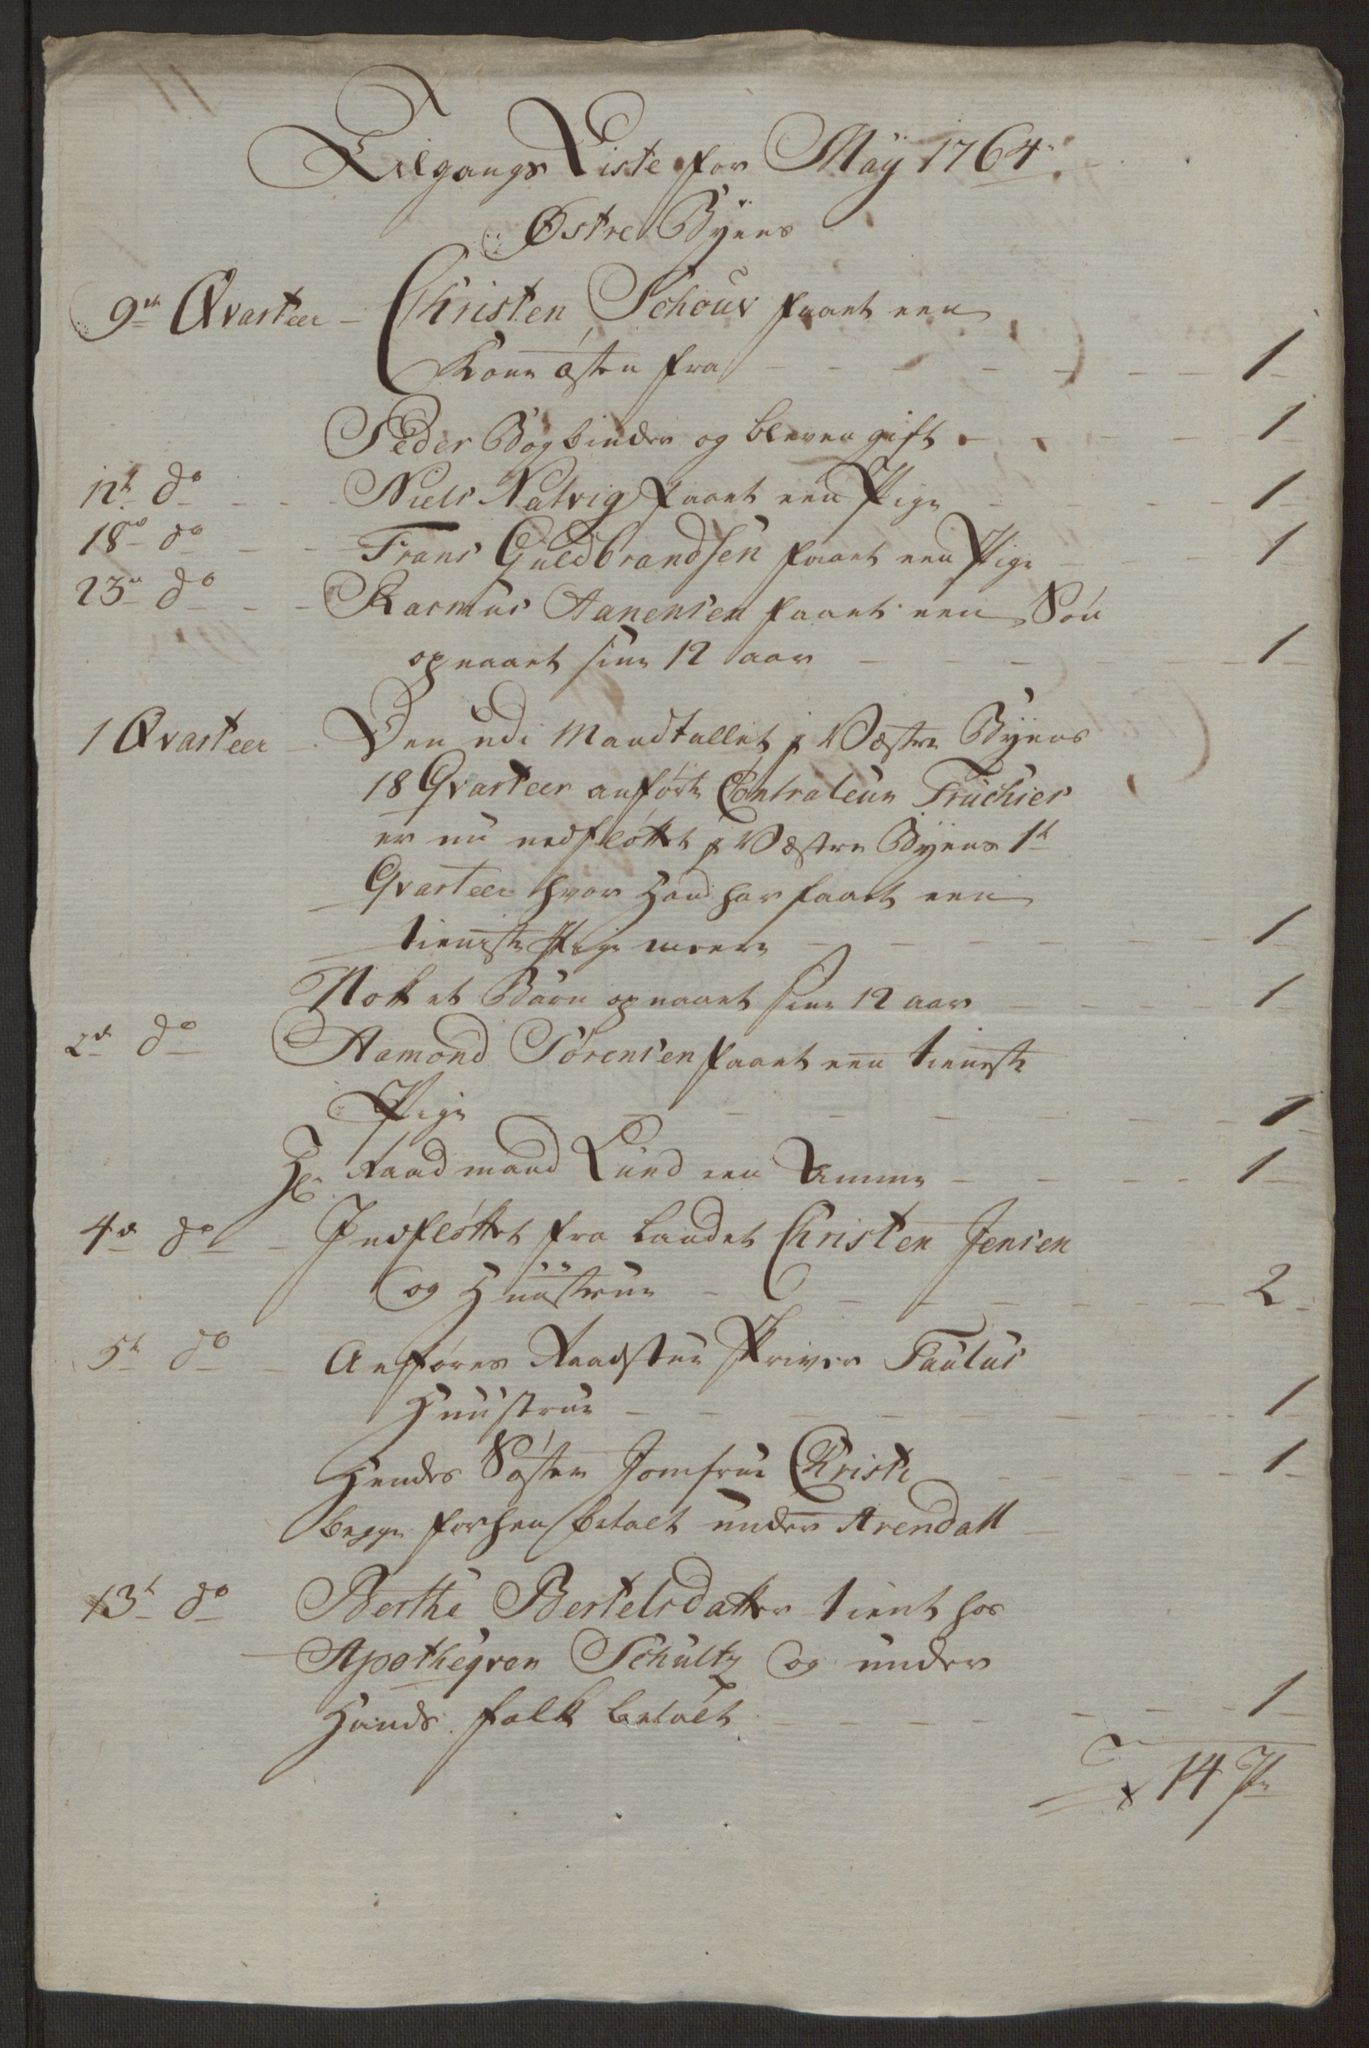 Tilgangs Liste for Maÿ 1764
Østre Byens
9de Qvarteer - Christen Schouv faaet een
Kone østen fra - 1
Peder Bogbinder og bleven gift - 1
12te do - Niels Natvig faaet een Pige - 1
18de do - Frans Guldbrandsen faaet een Pige - 1
23de do - Rasmus Aanensen faaet een Søn
opnaaet sine 12 aar - 1
1 Qvarteer - Den udi Mandtallet j Væstre Byens
18 Qvarteer anførte Contraleur Truchier
er nu nedfløttet j Væstre Byens 1te
Qvarteer hvor Hand har faaet een
tieniste Pige meere - 1
Nok et Barn opnaaet sine 12 aar - 1
2de do Aamond Sørensen faaet een tieneste
Pige - 1
Hr. Raadmand Lund een Amme - 1
4de do - Indfløttet fra Landet Christen Jensen
og Huustrue - 2
5te do - Anføres Raadstue Skriver Taulus
Huustrue - 1
Hendes Søster Jomfrue Christi - 1
begge forhen betalt under Arendall
13te do Berthe Bertelsdatter tient hos
Apothegven Schultz og under
Hands folk betalt - 1
14 Pr